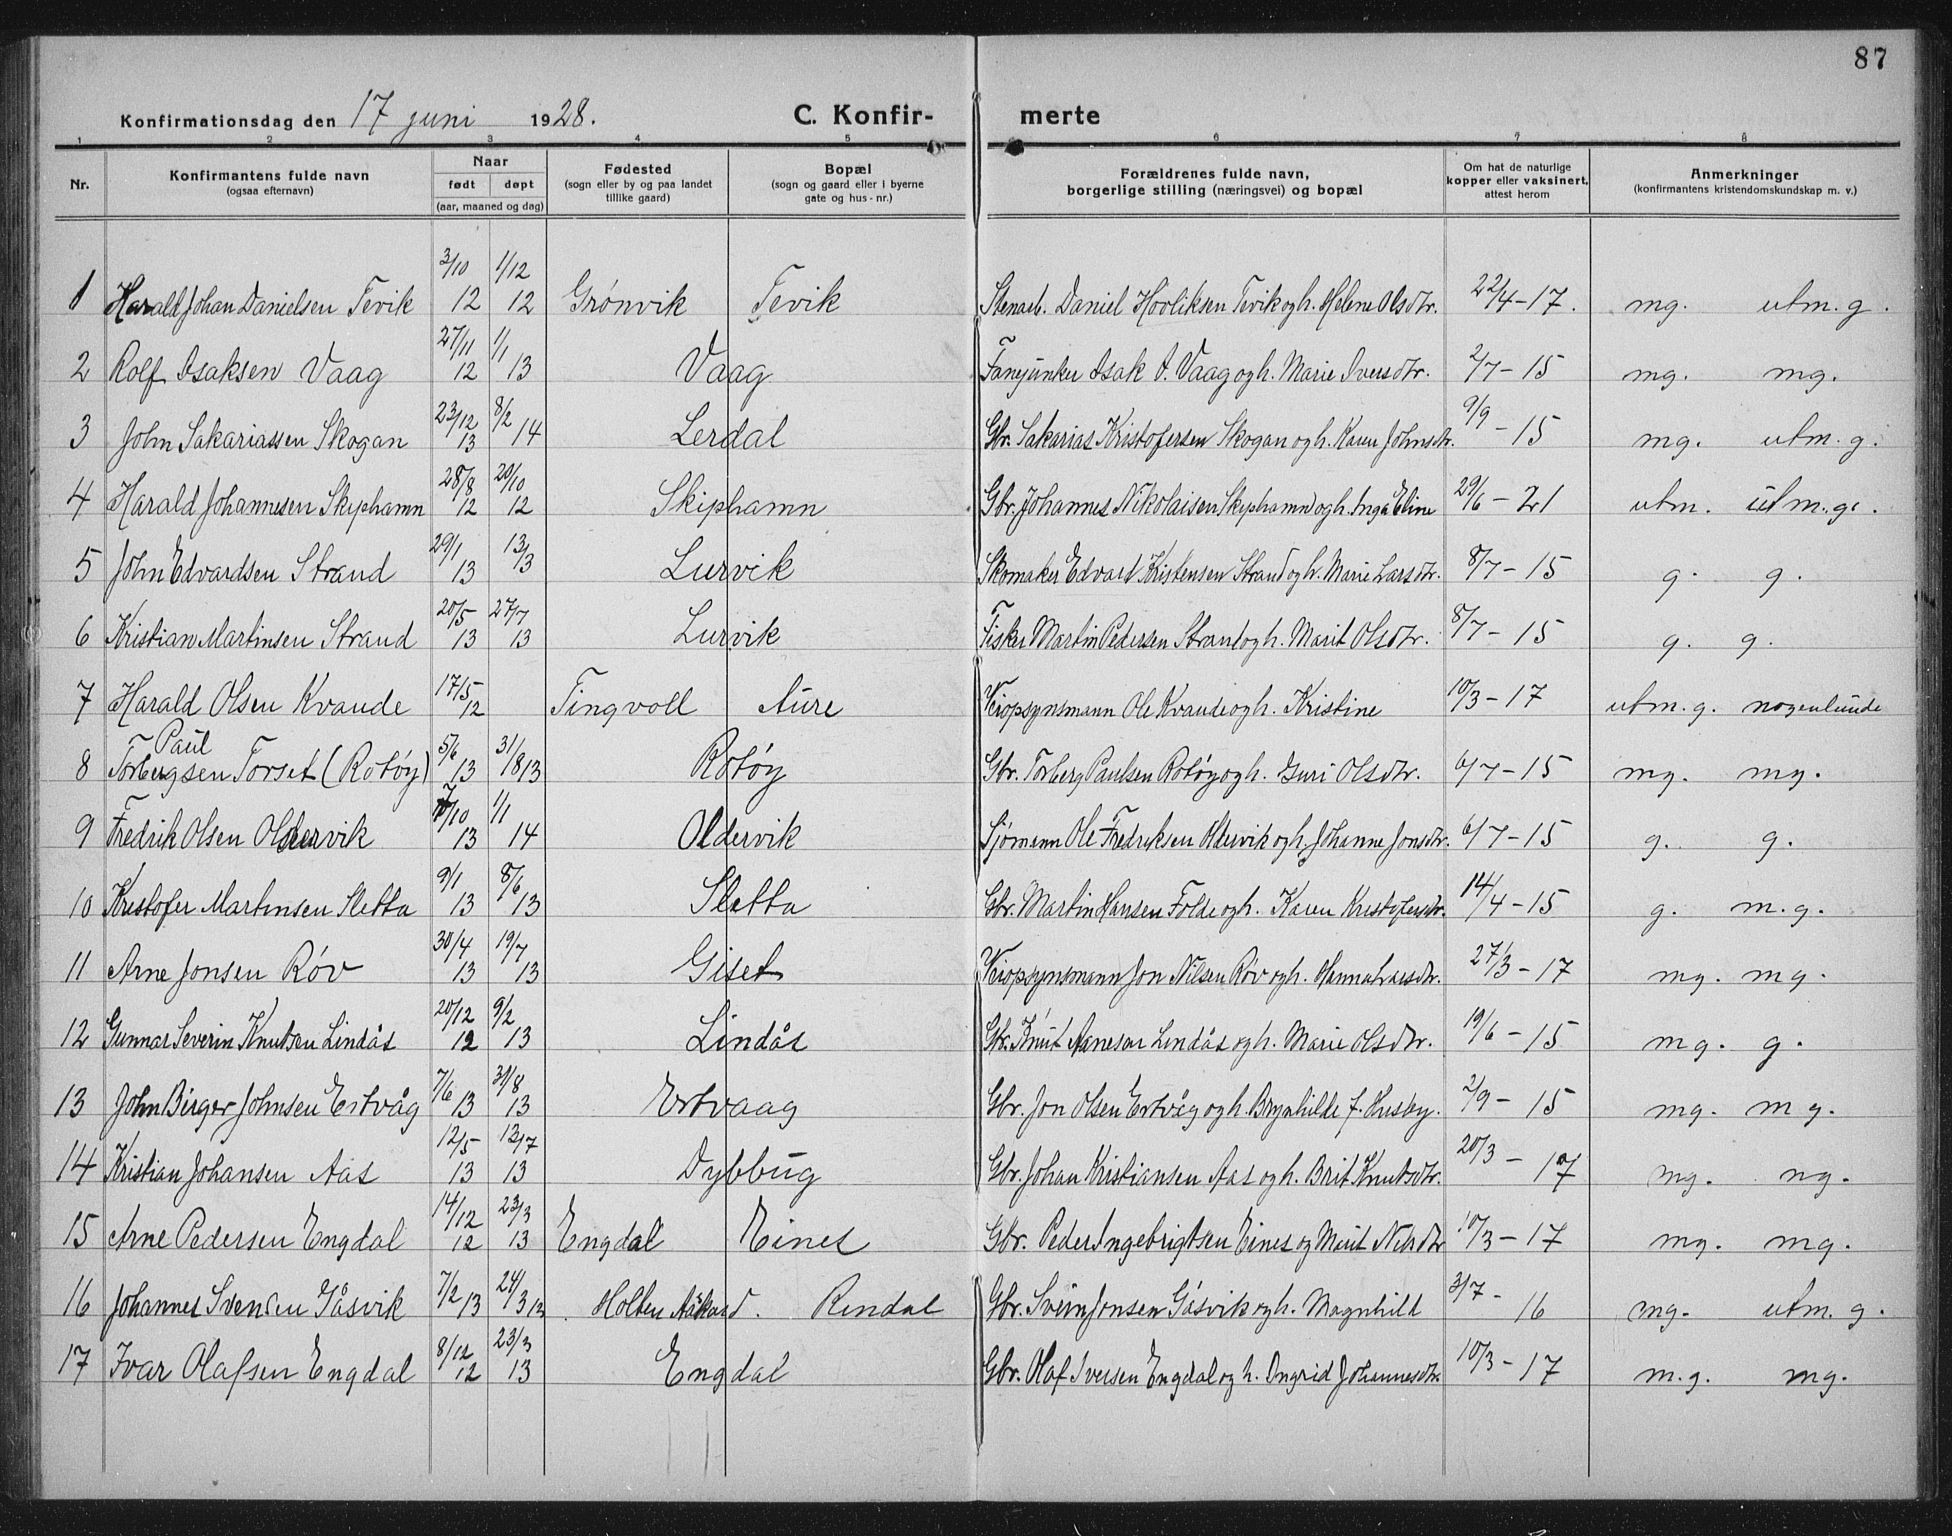 87
Konfirmationsdag den 17 juni 1928. C. Konfir- merte
1 2 3 4 5 6 7 8
Nr. Konfirmantens fulde navn (ogsaa efternavn) Naar født døpt (aar, maaned og dag) Fødested (sogn eller by og paa landet tillike gaard) Bopæl (sogn og gaard eller i byerne gate og hus-nr.) Forældrenes fulde navn, borgerlige stilling (næringsvei) og bopæl Om hat de naturlige kopper eller vaksinert, attest herom Anmerkninger (konfirmantens kristendomskundskap m. v.)
1 Harald Johan Danielsen Tevik 3/10 12 1/12 12 Grønvik Tevik Stenarb. Daniel Hovliksen Tevik og h. Helene Olsdtr. 22/4-17. mg. utm. g.
2 Rolf Isaksen Vaag 27/11 12 1/1 13 Vaag Fanejunker Isak I. Vaag og h. Marie Iversdtr. 2/7-15 mg. mg.
3 John Sakariassen Skogan 23/12 13 8/2 14 Lerdal Gbr. Sakarias Kristofersen Skogan og h. Karen Johnsdtr. 9/9-15 mg. utm. g.
4 Harald Johannesen Skiphamn 28/8 12 20/10 12 Skiphamn Gbr. Johannes Nikolaisen Skiphamn og h. Inga Eline 29/6-21 utm. utm. g.
5 John Edvardsen Strand 29/1 13 13/3 Lurvik Skomaker Edvard Kristensen Strand og h. Marie Larsdtr. 8/7-15 g. g.
6 Kristian Martinsen Strand 20/5 13 27/7 13 Lurvik Fisker Martin Pedersen Strand og h. Marit Olsdtr. 8/7-15 g. g.
7 Harald Olsen Kvande 17/5 12 Tingvoll Aure Veiopsynsmann Ole Kvande og h. Kristine 10/3-17 utm. g. nogenlunde
8 Paul Torbergsen Torset (Rotøy) 5/6 13 31/8 13 Rotøy Gbr. Torberg Paulsen Rotøy og h. Guri Olsdtr. 6/7-15 mg. mg.
9 Fredrik Olsen Oldervik /10 13 1/1 14 Oldervik Sjømann Ole Fredriksen Oldervik og h. Johanne Jonsdtr. 6/7-15 g. g.
10 Kristofer Martinsen Sletta 9/1 13 8/6 13 Sletta Gbr. Martin Hansen Folde og h. Karen Kristofersdtr. 14/4-15 g. m.g.
11 Arne Jonsen Røv 30/4 13 19/7 13 Giset Veiopsynsmann Jon Nilsen Røv og h. Hanna Larsdtr. 27/3-17 mg. mg.
12 Gunnar Severin Knutsen Lindås 20/12 12 9/2 13 Lindås Gbr. Knut Aanesen Lindås og h. Marie Olsdtr. 19/6-15 mg. g.
13 John Birger Johnsen Ertvåg 7/6 13 31/8 13 Ertvaag Gbr. Jon Olsen Ertvåg og h. Brynhilde f. Husby. 2/9-15 mg. mg.
14 Kristian Johansen Aas 12/5 13 13/7 13 Dybbug Gbr. Johan Kristiansen Aas og h. Brit Knutsdtr. 20/3-17 mg. ng.
15 Arne Pedersen Engdal 14/12 12 23/3 13 Engdal Eines Gbr. Peder Ingebrigtsen Eines og Marit Nilsdtr 10/3-17 mg. mg.
16 Johannes Svendsen Gåsvik 7/2 13 24/3 13 Holten Aakard. Rindal Gbr. Svein Jonsen Gåsvik og h. Magnhild 3/7-16 mg. utm. g.
17 Ivar Olafsen Engdal 8/12 12 23/3 13 Engdal Gbr. Olaf Iversen Engdal og h. Ingrid Johannesdtr. 10/3-17 m.g. mg.